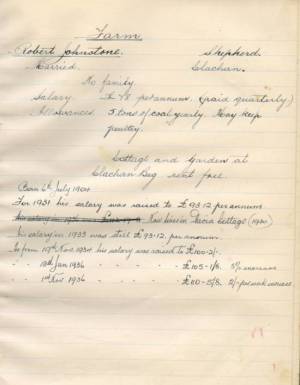 Farm
Robert Johnstone. Shepherd.
Married. Clachan.
No family
Salary £ per annum. (paid quarterly)
Allowances. 5 tons of coal yearly. May keep
poultry.
Cottage and Garden at
Clachan Beg rent free.
Born 6th July 1904
For 1931 his salary was raised to £93-12 per annum
Now lives in Cottage
his salary in 1933 was still £93-12. per annum.
from 19th Nov. 1934 his salary was raised to £100-2/-.
Jan 1936 £105-1/8. increase
1st Nov. 1936 £110-5/8. 2/- per week increase